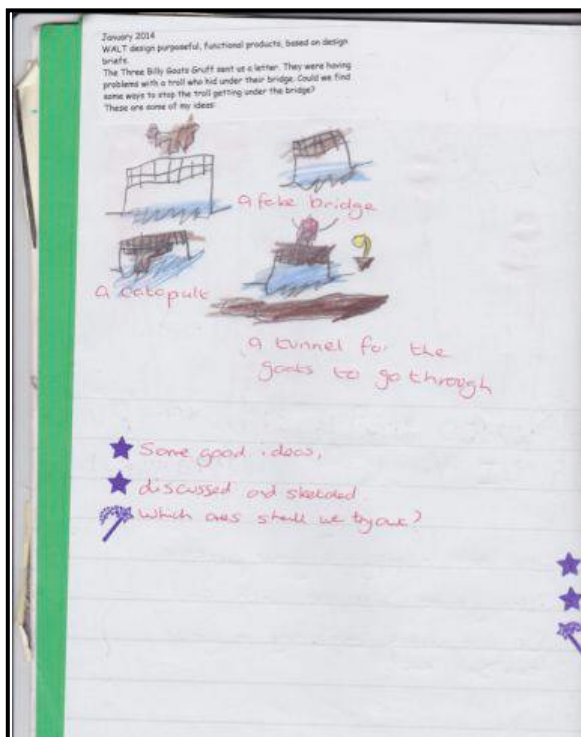 January 2014
WALT design purposeful, functional products, based on design
briefs.
The Three Billy Goats Gruff sent us a letter. They were having
problems with a troll who hid under their bridge. Could we find
some ways to stop the troll getting under the bridge?
These are some of my ideas:
a fake bridge
a catapult
a tunnel for the
goats to go through
Some good ideas,
discussed and sketched.
Which ones shall we try out?